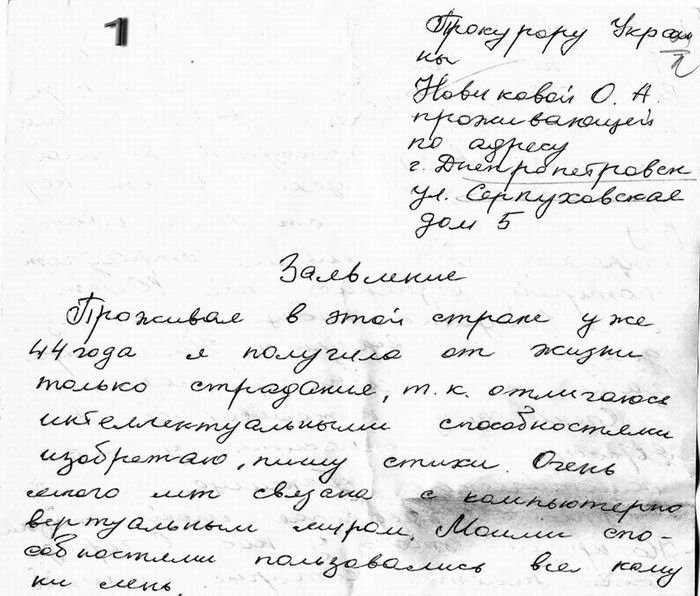 1
Прокурору Украи
ны
Новиковой О. А.
проживающей
по адресу
г. Днепропетровск
ул. Серпуховская
дом 5
Заявление
Проживая в этой стране уже
44 года я получила от жизни
только страдания, т. к. отличаюсь
интеллектуальными способностями
изобретаю, пишу стихи. Очень
много лет связана с компьютерно
вертуальным миром. Моими спо-
собностями пользовались все кому
ни лень.